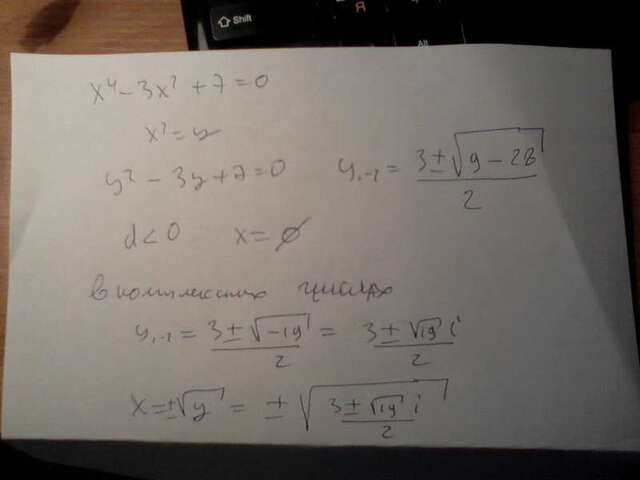 Shift
Я
Alt
x⁴ - 3x² + 7 = 0
x² = y
y² - 3y + 7 = 0 y₁,₂ = (3 ± √(9 - 28)) / 2
d < 0 x = ∅
в комплексных числах
y₁,₂ = (3 ± √(-19)) / 2 = (3 ± √19 i) / 2
x = ±√y = ± √((3 ± √19 i) / 2)